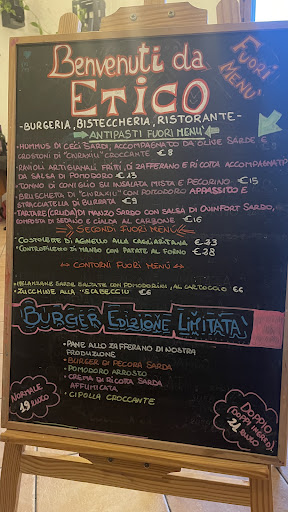 Benvenuti da
Fuori
Menù
ETICO
-Burgeria, Bisteccheria, Ristorante-
Antipasti fuori menu'
-Hummus di ceci sardi, accompagnato da olive sarde e
crostoni di "civraxiu" croccante €8
-Ravioli artigianali fritti, di zafferano e ricotta accompagnati
da salsa di pomodoro €13
-Tonno di coniglio su insalata mista e pecorino €15
-Bruschetta di "civraxiu" con pomodoro appassito e
stracciatella di burrata €9
-Tartare (cruda) di manzo sardo con salsa di
composta di sedano e cialda al carbone €16
Secondi fuori menù
-Costolette di agnello alla cagliaritana €23
-Controfiletto di manzo con patate al forno €28
Contorni fuori menù
-Melanzane sarde saltate con pomodorini, al cartoccio €6
-Zucchine alla "scabecciu" €6
Burger Edizione Limitata
-Pane allo zafferano di nostra
produzione
-Burger di pecora sarda
-Pomodoro arrosto
-Crema di ricotta sarda
affumicata
-Cipolla croccante
Normale
19 euro
Doppio
21 euro